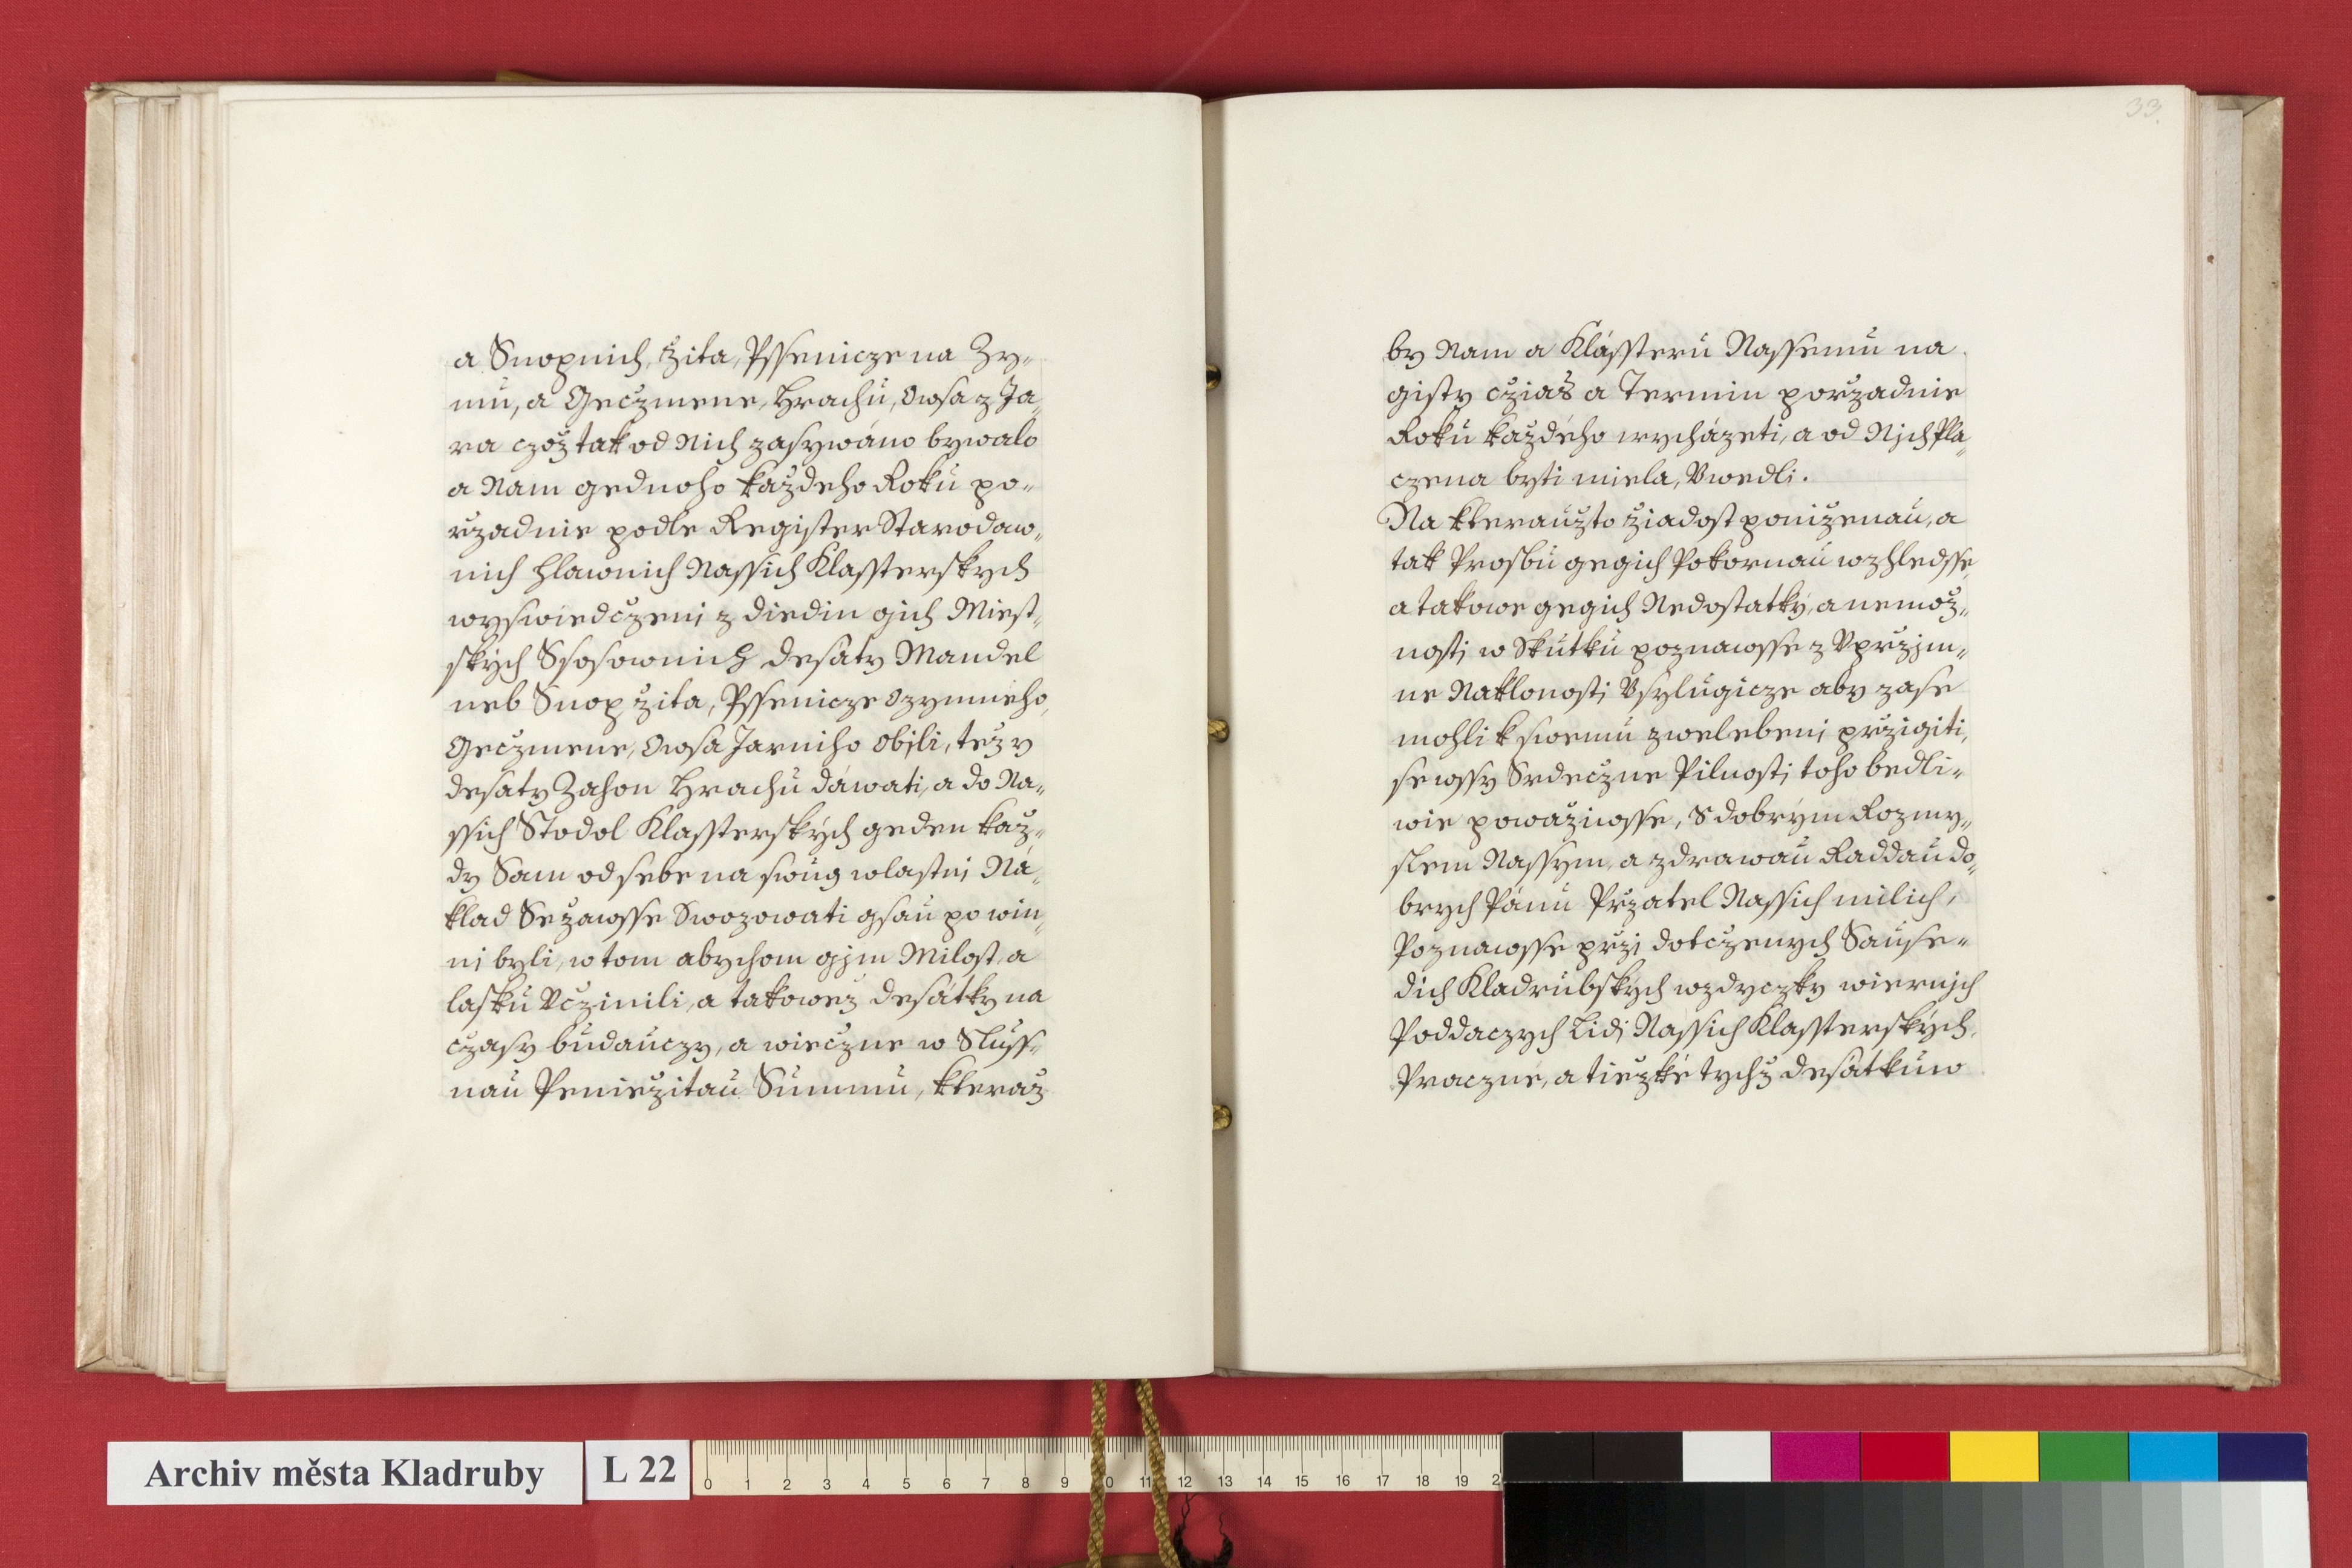 a Snopnich, žita, Pssenicze na Zy„
mu, a Geczmene, Hrachu, Owsa z Ja„
ra czož tak od Nich zasywáno bywalo
a Nam gednoho každeho Roku po„
rzadnie podle Register Starodaw„
nich Hlawnich Nassich Klassterskych
wyswiedczeni z diedin gich Miest„
skych Ssosownich desaty Mandel
neb Snop žita, Pssenicze Ozymnieho,
Geczmene, Owsa Jarniho Obili, tež y
desaty Zahon Hrachu dáwati, a do Na„
ssich Stodol Klassterských geden kaž„
dy Sam od sebe na swůg wlastni Ná„
klad Sežawsse Swozowati gsau powin„
ni byli, w tom abychom gjm Milost, a
lasku Vczinili, a takowež desátky na
czasy budauczy, a wieczne w Sluss„
nau Peniezitau Summu, kteraž
33.
by Nam a Klássteru Nassemu na
gisty czias a Termin porzadnie
Roku každého wycházeti, a od Njch Pla„
czena byti miela, Vwedli.
Na kteraužto žiadost poniženau, a
tak Prosbu gegich Pokornau wzhledsse,
a takowe gegich Nedostatky, a nemož„
nosti w Skutku poznawsse z Vprzjm„
ne Naklonosti Vsylugicze aby zase
mohli k swemu zwelebeni przigiti,
se wssy Srdeczne Pilnosti toho bedli„
wie powažiwsse, S dobrým Rozmy„
slem Nassym, a zdrawau Raddau do„
brych Pánu Przatel Nassich milich,
Poznawsse przi dotczenych Sause„
dich Kladrubských wzdyczky wiernjch
Poddaczych Lidi Nassich Klassterských,
Praczne, a tiezké tychž desátkuw
Archiv města Kladruby
L 22
0 1 2 3 4 5 6 7 8 9 10 11 12 13 14 15 16 17 18 19 2